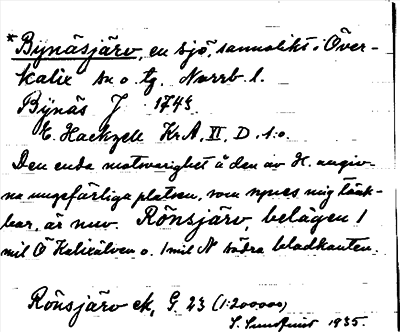 *Bynäsjärv, en sjö, sannolikt i Över-
kalix sn o. tg. Norrb. l.
Bynäs J 1743
E. Hackzell Kr A, VI, D, 1:o.
Den enda motsvarighet å den av H. angiv-
na ungefärliga platsen, som synes mig tänk-
bar, är nuv. Rönsjärv, belägen 1
mil Ö Kalixälven o. 1 mil N södra bladkanten.
Rönsjärv ek, G 23 (1:200000)
S. Sundquist 1935.